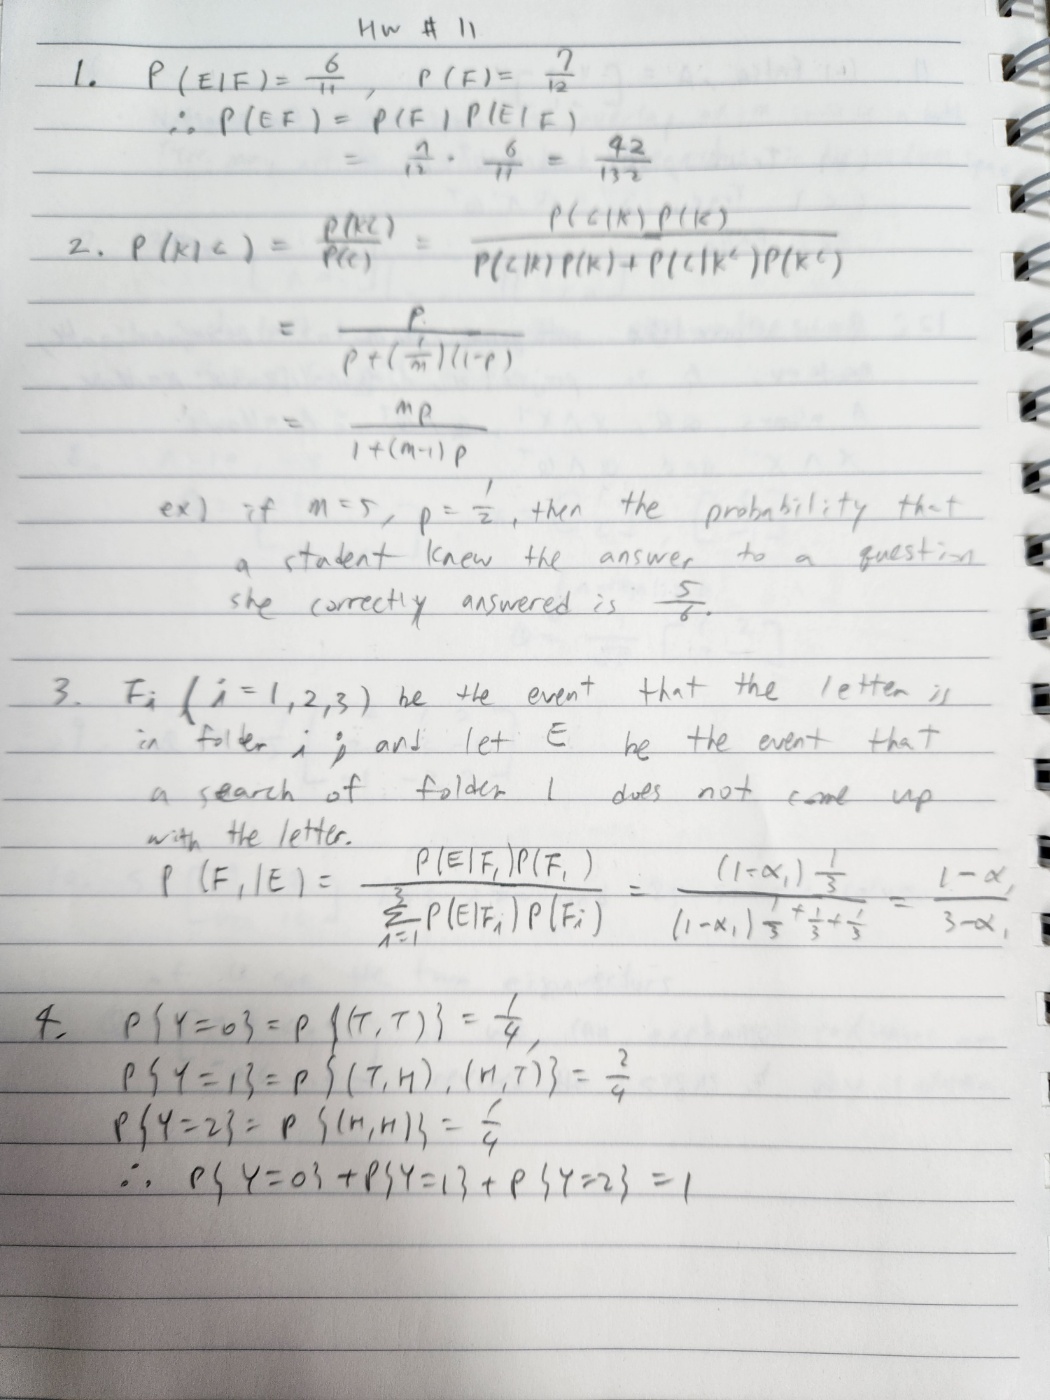 HW # 11
1. P(E|F) = 6/11, P(F) = 7/12
∴ P(EF) = P(F) P(E|F)
= 7/12 · 6/11 = 42/132
2. P(K|C) = P(KC)/P(C) = P(C|K)P(K) / P(C|K)P(K)+P(C|K^c)P(K^c)
= p / p+(1/m)(1-p)
= mp / 1+(m-1)p
ex) if m=5, p=1/2, then the probability that
a student knew the answer to a question
she correctly answered is 5/6.
3. Fi (i=1,2,3) be the event that the letter is
in folder i ; and let E be the event that
a search of folder 1 does not come up
with the letter.
P(F₁|E) = P(E|F₁)P(F₁) / Σ_{i=1}^{3} P(E|Fi)P(Fi) = (1-α₁)1/3 / (1-α₁)1/3+1/3+1/3 = 1-α₁ / 3-α₁
4. P{Y=0} = P{(T,T)} = 1/4,
P{Y=1} = P{(T,H),(H,T)} = 2/4
P{Y=2} = P{(H,H)} = 1/4
∴ P{Y=0}+P{Y=1}+P{Y=2} = 1